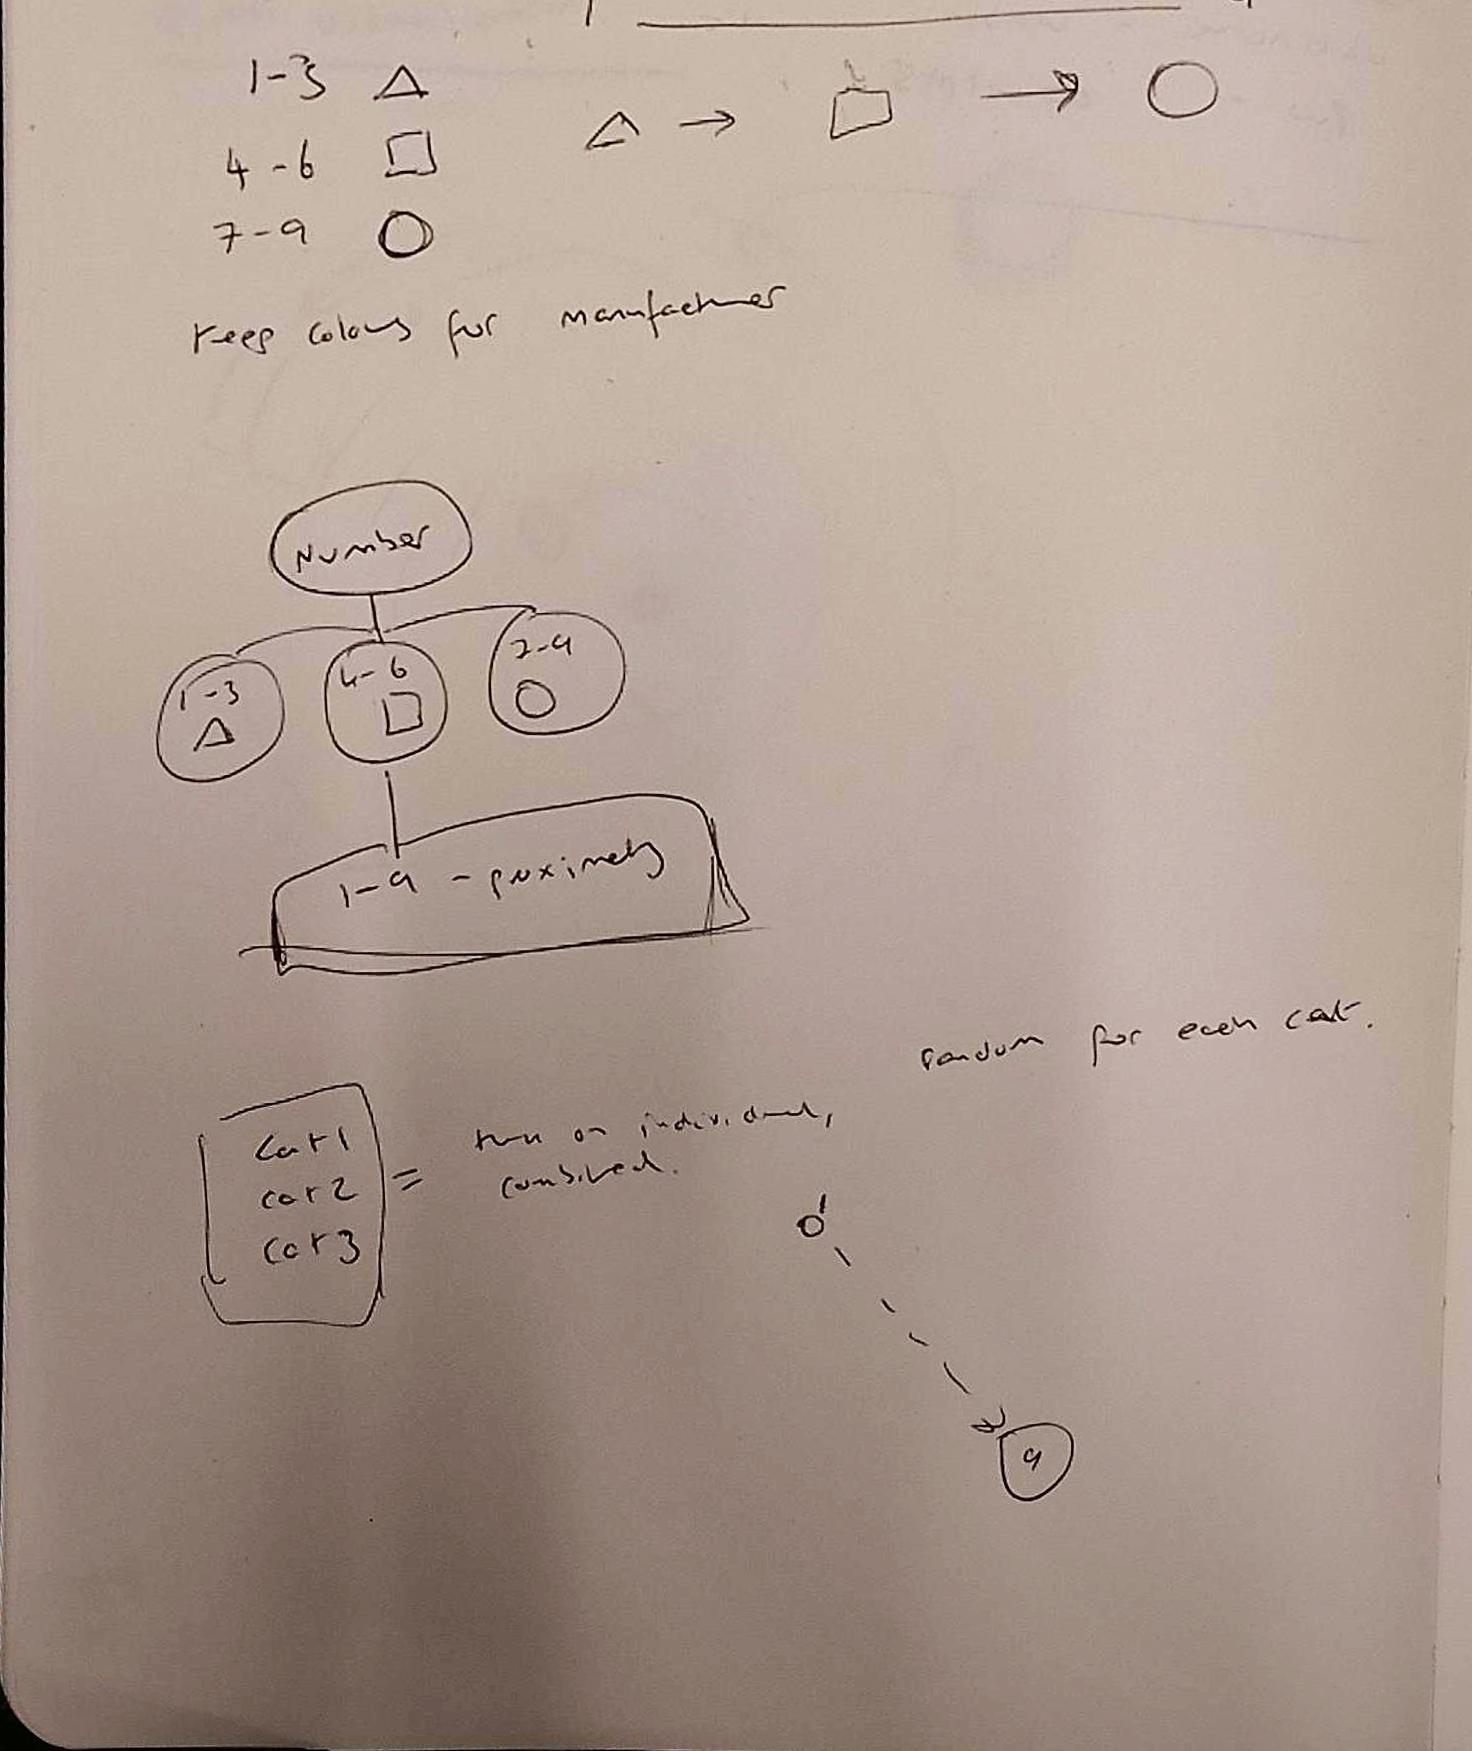 1-3
4-6
7-9
Keep colours for manufacturer
Number
1-3
4-6
7-9
1-9 - proximety
random for each cat.
Cat1
cat2
cat3
= turn on individual,
combined.
1
9